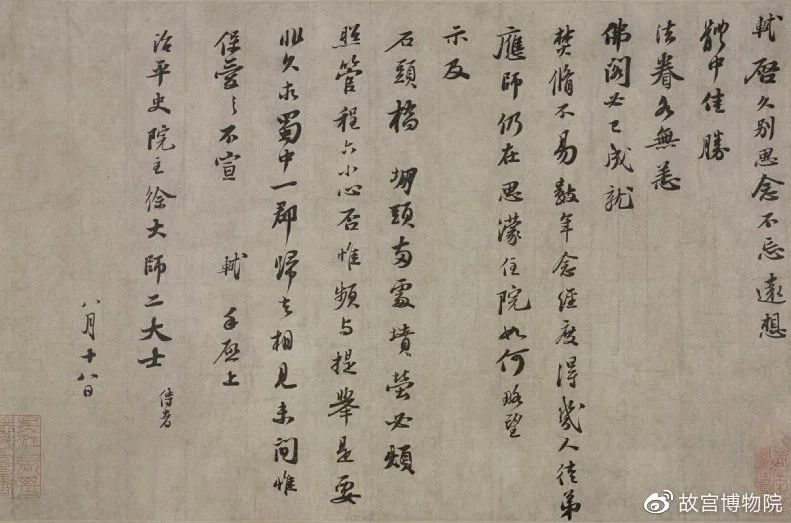 軾啓久別思念不忘遠想
體中佳勝
法眷各無恙
佛閣必已成就
焚脩不易數年念經度得幾人徒弟
應師仍在思濛住院如何略望
示及
石頭橋堋頭兩處墳塋必煩
照管程六小心否惟頻與提舉是要
非久求蜀中一郡歸去相見未間惟
保愛之不宣 軾手啓上
治平史院主徐大師二大士 侍者
八月十八日
故宫博物院